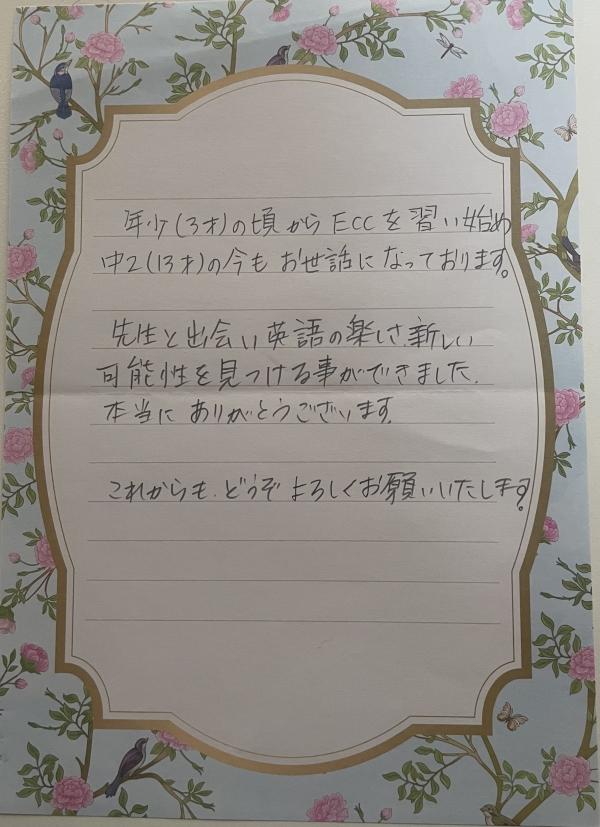 年少(3才)の頃からECCを習い始め
中2(13才)の今もお世話になっております。
先生と出会い英語の楽しさ、新しい
可能性を見つける事ができました。
本当にありがとうございます。
これからも、どうぞよろしくお願いいたします。